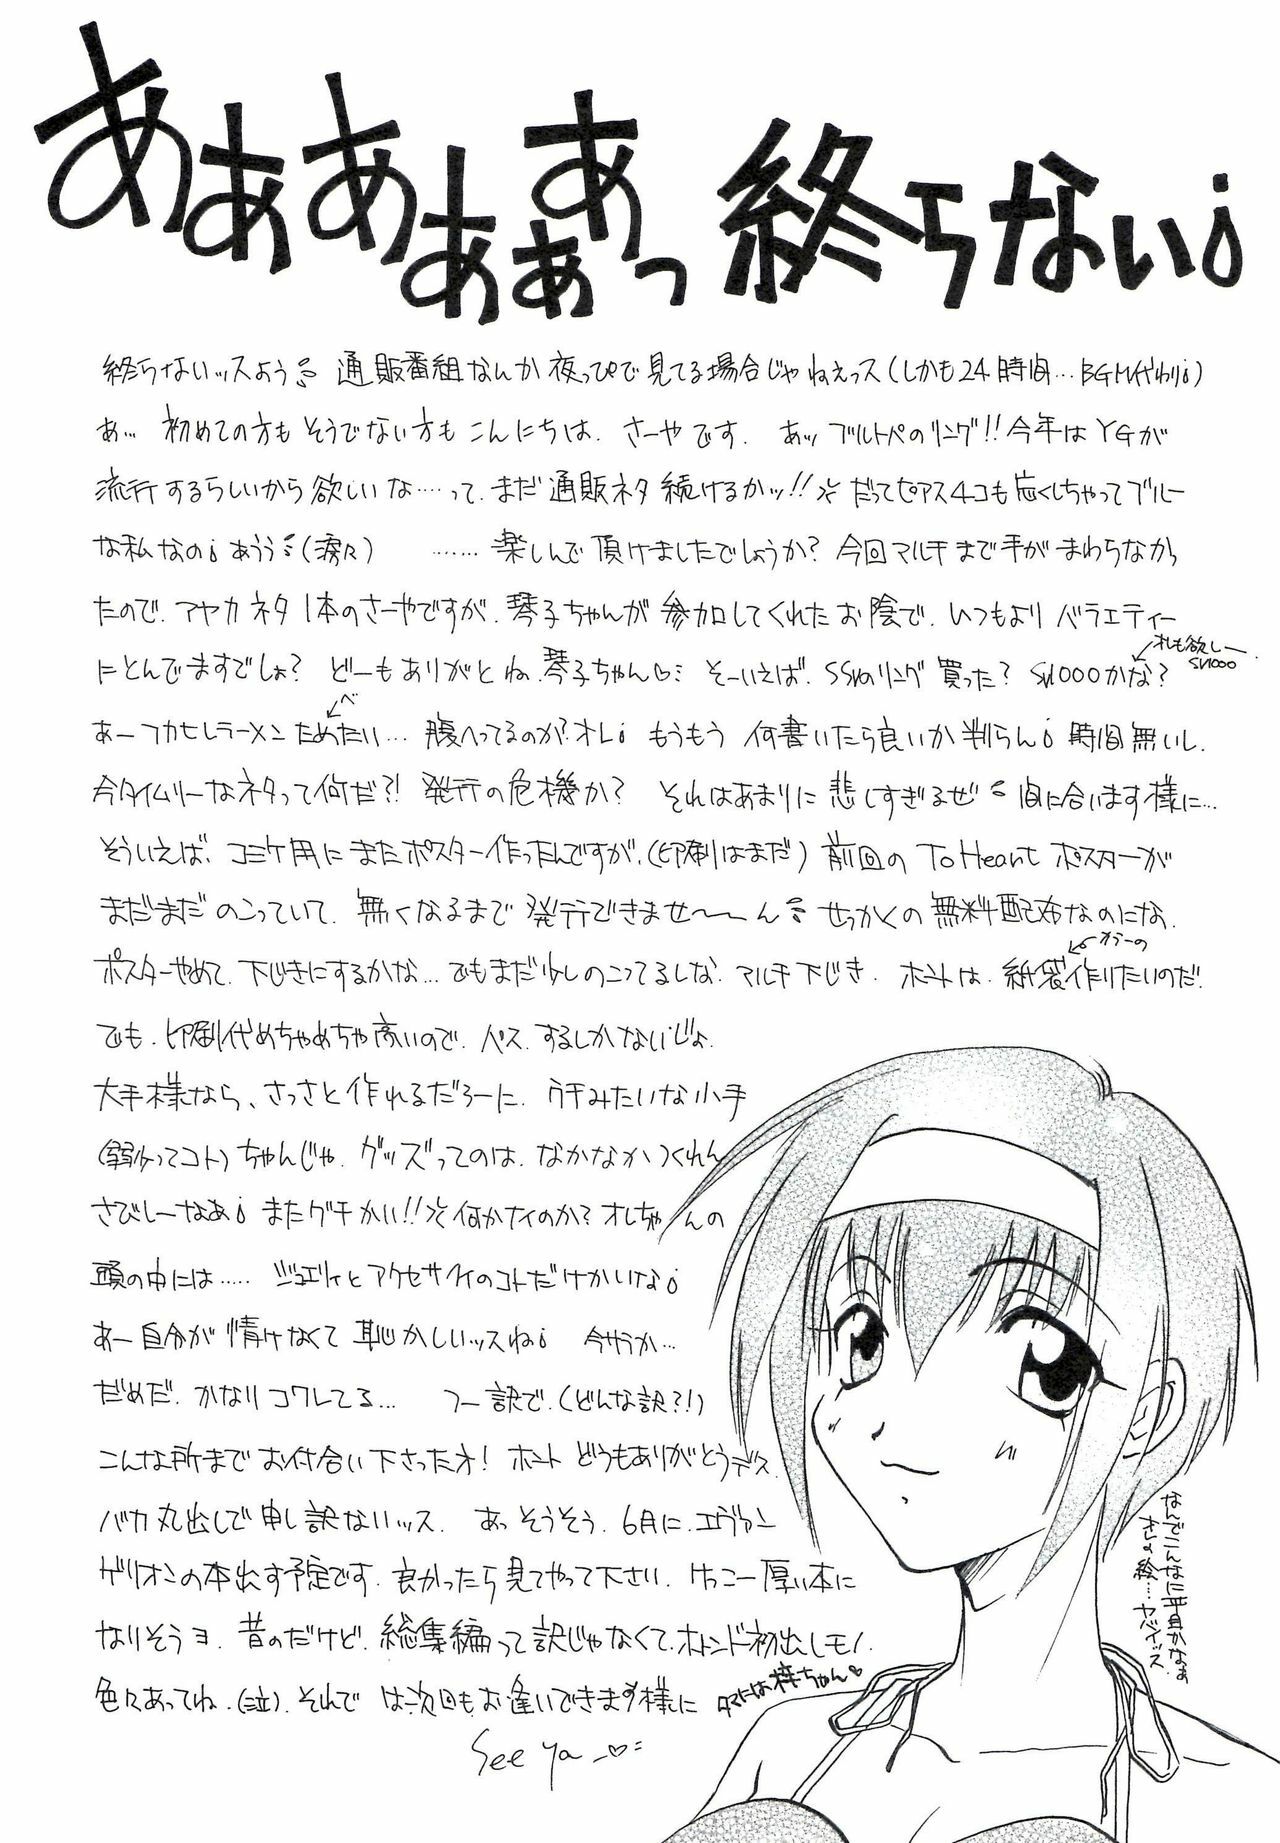 ああああああぁっ 終らない
終らないッスよう 通販番組なんか夜っぴで見てる場合じゃねえっス(しかも24時間…BGM代わり)
あ… 初めての方もそうでない方もこんにちは、さーやです。 あッブルトペのリング!!今年はYGが
流行するらしいから欲しいな……って、まだ通販ネタ続けるかッ!! だってピアス4コも亡くしちゃってブルー
な私なの あうう(涙々) ……楽しんで頂けましたでしょうか?今回マルチまで手がまわらなかっ
たので、アヤカネタ1本のさーやですが、琴子ちゃんが参加してくれたお陰で、いつもよりバラエティー
にとんでますでしょ? どーもありがとね、琴子ちゃん♡ そーいえば、SSVのリング買った? SV1000かな?
オレも欲しー SV1000
あーフカヒレラーメンたべたい… 腹へってるのか?オレ もうもう 何書いたら良いか判らん 時間無いし、
今タイムリーなネタって何だ?! 発行の危機か? それはあまりに悲しすぎるぜ 間に合います様に…
そういえば、コミケ用にまたポスター作ったんですが、(印刷はまだ)前回のToHeartポスターが
まだまだのこっていて、無くなるまで発行できませ〜〜ん せっかくの無料配布なのにな、
ポスターやめて、下じきにするかな…でもまだ少しのこってるしな、マルチ下じき、ホントは、紙袋作りたいのだ!
カラーの
でも、印刷代めちゃめちゃ高いので、パス、するしかないじょ、
大手様なら、さっさと作れるだろーに、ウチみたいな小手
(弱小ってコト)ちゃんじゃ、グッズってのは、なかなかつくれん
さびしーなあ またグチかい!! 何かナイのか?オレちゃんの
頭の中には…… ジュエリィとアクセサリィのコトだけかいな
あー自分が情けなくて恥かしいッスね 今サラか…
だめだ、かなりコワレてる… つー訳で、(どんな訳?!)
こんな所までお付合い下さった方! ホント どうもありがとうデス、
バカ丸出しで申し訳ないッス、 あっそうそう、6月に、エヴァン
ゲリオンの本出す予定です、良かったら見てやって下さい、けっこー厚い本に
なりそうヨ、昔のだけど、総集編って訳じゃなくて、ホトンド初出しモノ、
色々あってね、(泣)、それでは、次回もお逢いできます様に
See ya ♡
タマには梓ちゃん♡
なんでこんなに平目かなぁ
オレの絵…ヤバイッス